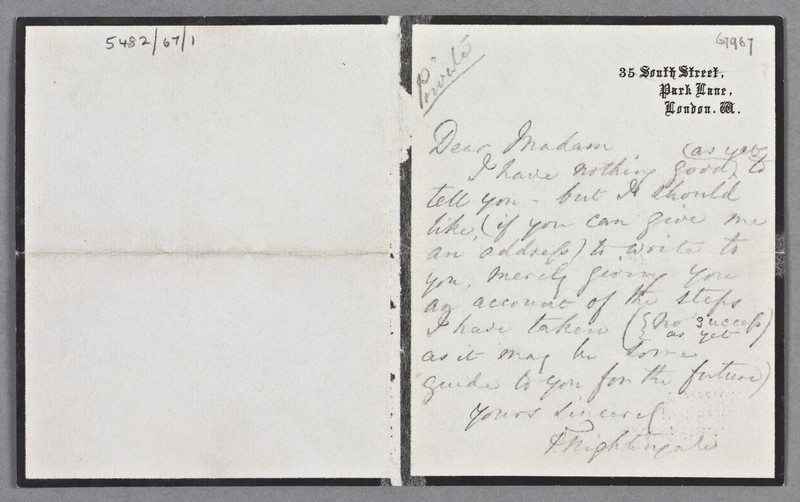 5482/67/1
G7967
Private
35 South Street,
Park Lane,
London. W.
Dear Madam
(as yet)
I have nothing good to
tell you - but I should
like, (if you can give me
an address) to write to
you, merely giving you
an account of the steps
I have taken ({no success)
as yet
as it may be some
guide to you for the future)
yours sincerely
F Nightingale